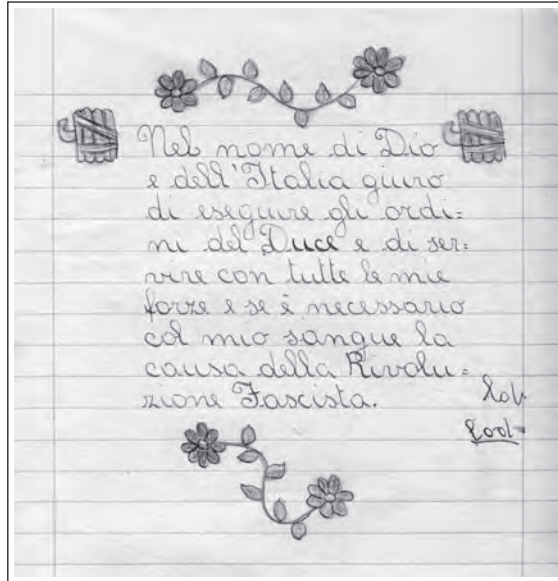 Nel nome di Dio
e dell'Italia giuro
di eseguire gli ordi=
ni del Duce e di ser=
vire con tutte le mie
forze e se è necessario
col mio sangue la
causa della Rivolu=
zione Fascista.